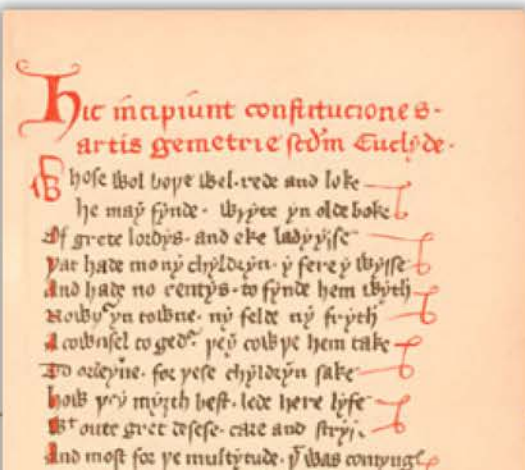 Hic incipiunt constituciones
artis gemetrie scd'm Euclyde.
Whose wol bothe wel rede and loke
he may fynde wryte yn olde boke
Of grete lordys and eke ladyysse
þat hade mony chyldryn y fere y wysse
And hade no rentys to fynde hem wyth
Nowþ yn towne ny felde ny fryth
A cownsel toged' þey cowþe hem take
To ordeyne for þese chyldryn sake
how þey myȝth best lede here lyfe
Wt oute gret desese care and stryf
And most for þe multytude þt was comynge